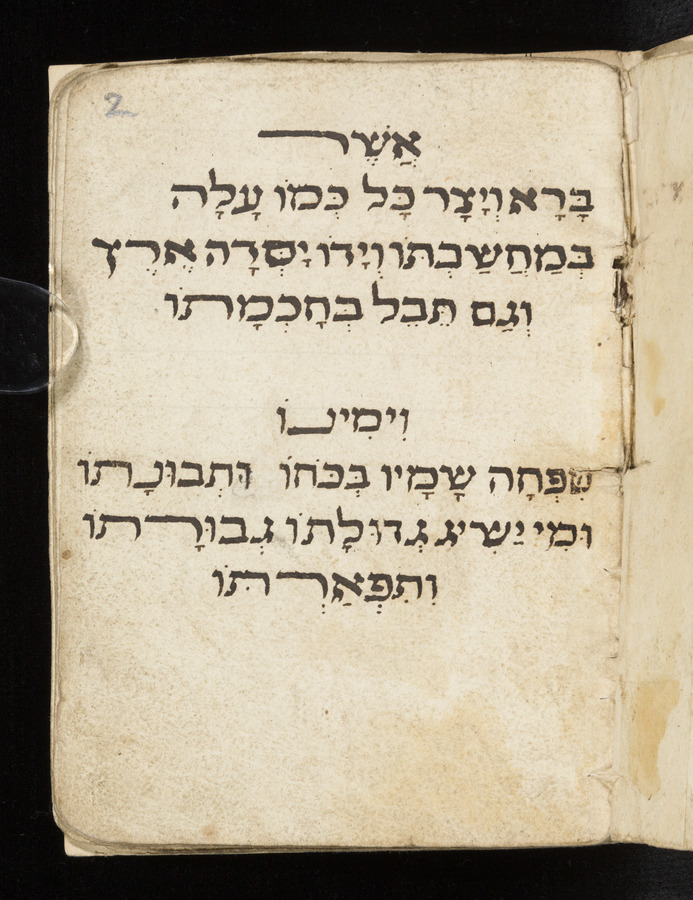 2
אֲשֶׁר
בָּרָא וְיָצַר כָּל כְּמוֹ עָלָה
בְּמַחֲשַׁבְתּוֹ וְיָדוֹ יָסְדָה אֶרֶץ
וְגַם תֵּבֵל בְּחָכְמָתוֹ
וִימִינוֹ
טִפְּחָה שָׁמָיו בְּכֹּחוֹ וּתְבוּנָתוֹ
וּמִי יַשִּׂיג גְּדוּלָתוֹ גְּבוּרָתוֹ
וְתִפְאַרְתּוֹ